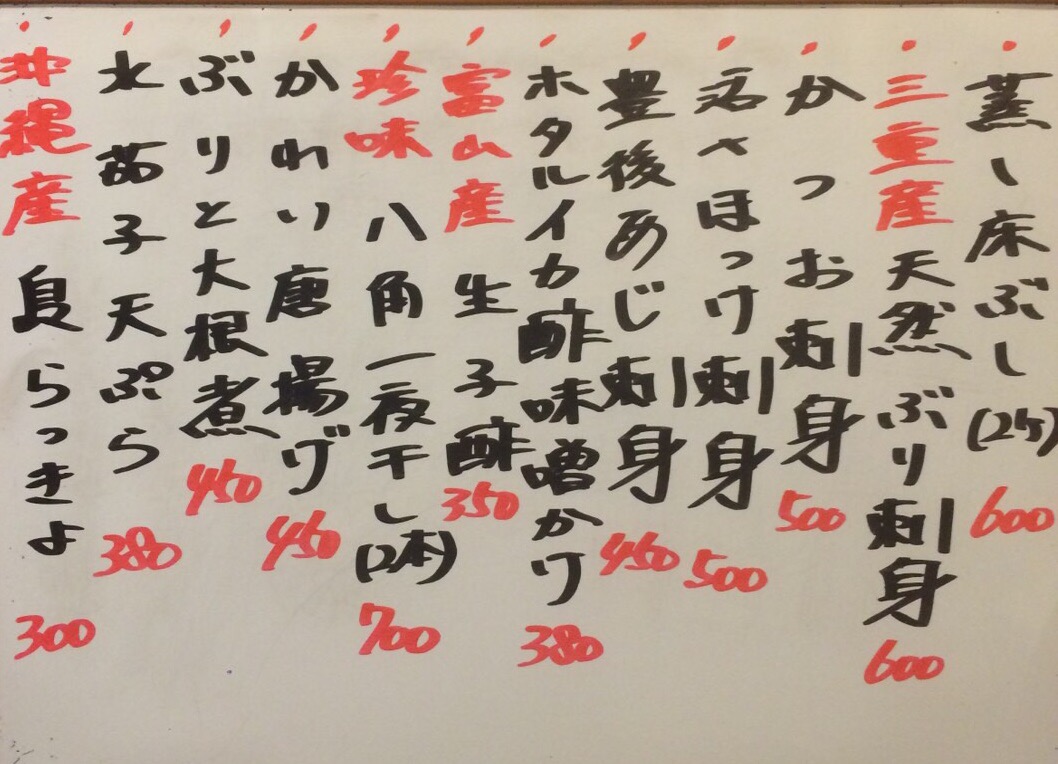 ・蒸し床ぶし(2ケ) 600
・三重産天然ぶり刺身 600
・かつお刺身 500
・ほっけ刺身 500
・豊後あじ刺身 450
・ホタルイカ酢味噌かけ 380
・富山産 生子酢 350
・珍味 八角一夜干し(2本) 700
・かれい唐揚げ 450
・ぶりと大根煮 450
・水茄子天ぷら 380
・沖縄産 島らっきょ 300